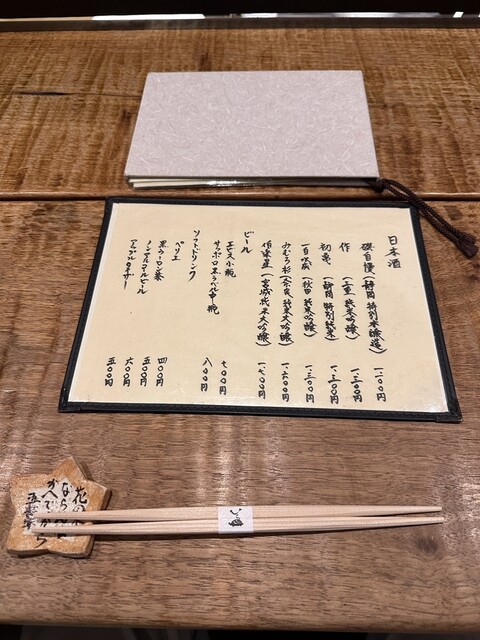 日本酒
磯自慢(静岡 特別本醸造) 一、一〇〇円
作(三重 純米吟醸) 一、三〇〇円
初亀(静岡 特別純米)
(秋田 純米吟醸) 一、三〇〇円
みむろ杉(奈良 純米大吟醸) 一、六〇〇円
伯楽星(宮城 純米大吟醸)
ビール
エビス小瓶 七〇〇円
サッポロ黒ラベル中瓶 八〇〇円
ソフトドリンク
ペリエ 四〇〇円
黒ウーロン茶 五〇〇円
ノンアルコールビール 六〇〇円
五〇〇円
花の木